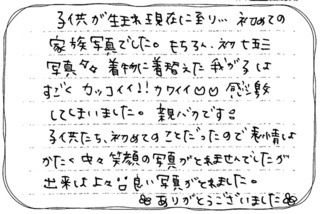 子供が生まれ現在に至り… 初めての
家族写真でした。もちろん、初七五三
写真々々 着物に着替えた我が子は
すごく カッコイイ!! カワイイ♡♡ 感激
してしまいました。親バカです!!
子供たち、初めてのことだったので表情は
かたく中々笑顔の写真がとれませんでしたが
出来は上々!! 良い写真がとれました。
ありがとうございました